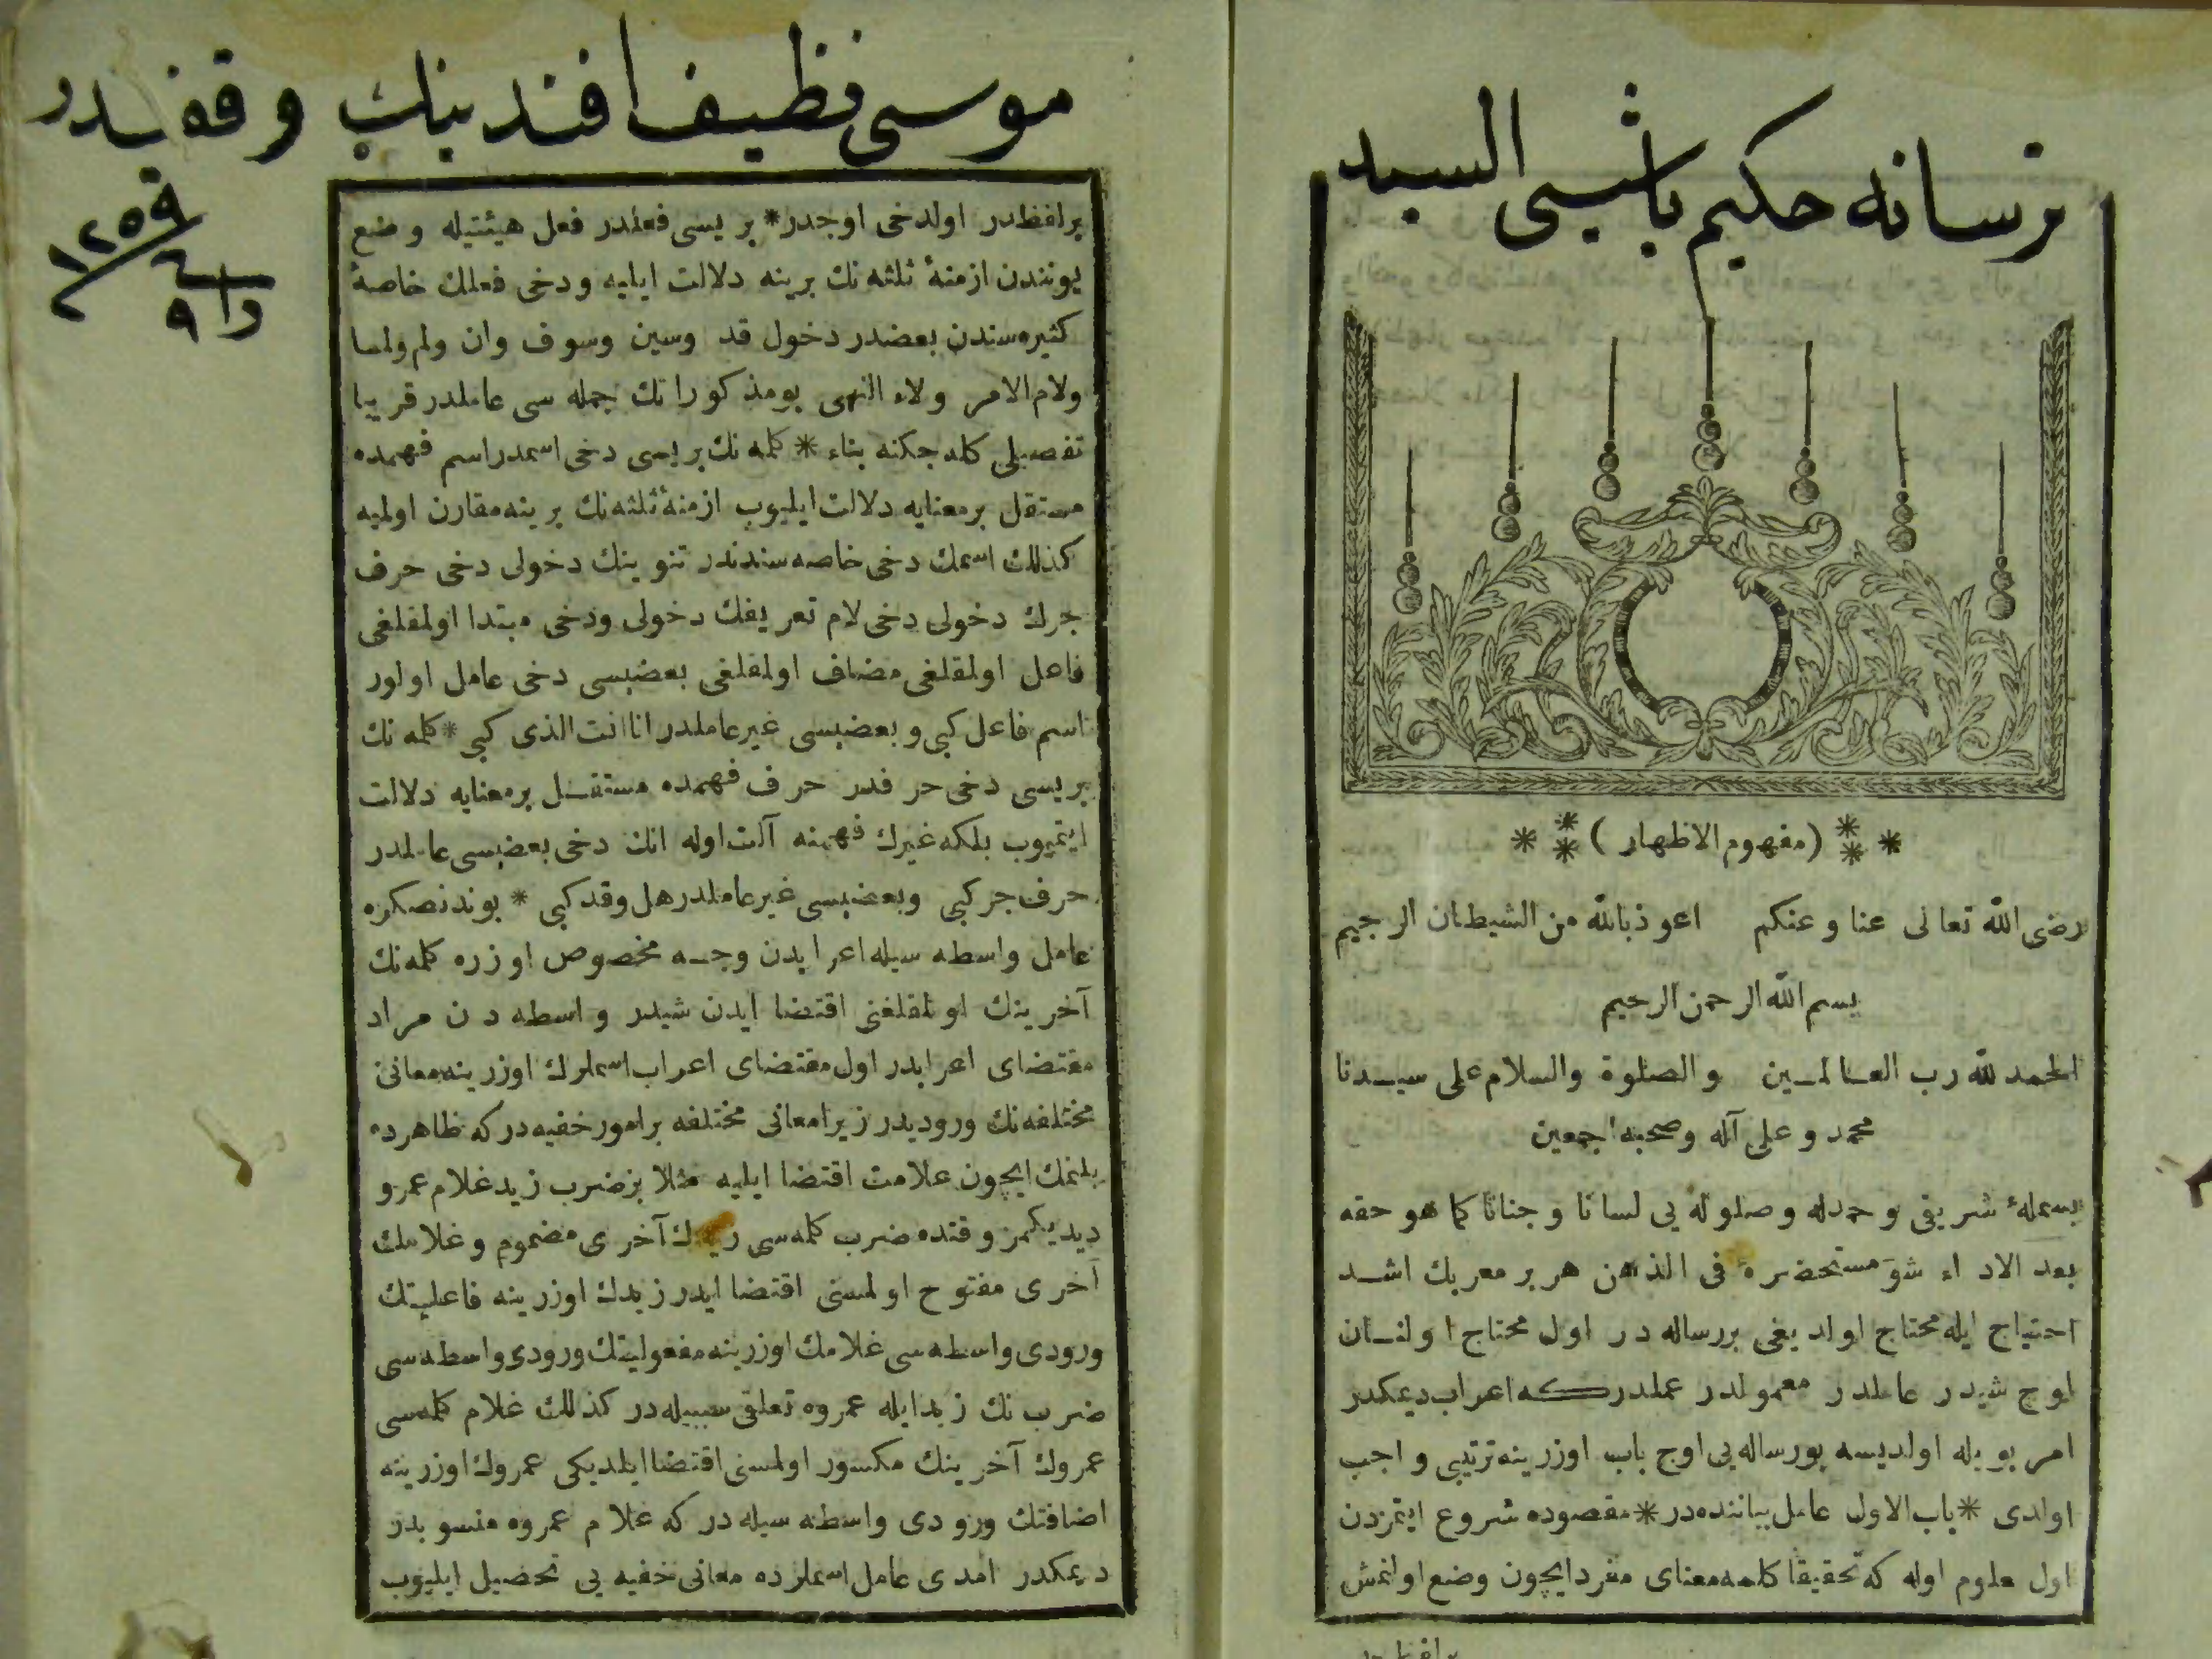 ترسانه حكيم باشيسى السيد
* ** (مفهوم الاظهار) ** *
رضى الله تعالى عنا وعنكم اعوذ بالله من الشيطان الرجيم
بسم الله الرحمن الرحيم
الحمد لله رب العالمين والصلوة والسلام على سيدنا
محمد وعلى آله وصحبه اجمعين
بسملهٔ شريفى وحمدله وصلوله يى لسانا وجنانا كما هو حقه
بعد الاداء شو مستحضره فى الذهن هر بر معربك اشد
احتياج ايله محتاج اولديغى بررساله در اول محتاج اولنان
اوج شيدر عاملدر معمولدر عملدركه اعراب ديمكدر
امر بويله اولديسه بورساله يى اوج باب اوزرينه ترتيبى واجب
اولدى * باب الاول عامل بياننده در * مقصوده شروع ايتمزدن
اول معلوم اوله كه تحقيقا كلمه معناى مفرد ايچون وضع اولنمش
موسى نظيف افندينك وقفيدر
برلفظدر اولدخى اوجدر * بريسى فعلدر فعل هيئتيله وضع
يونندن ازمنهٔ ثلثه نك برينه دلالت ايليه ودخى فعلك خاصهٔ
كثيره سندن بعضدر دخول قد وسين وسوف وان ولم ولما
ولام الامر ولاء النهى بومذكوراتك جمله سى عاملدر قريبا
تفصيلى كله جكنه بناء * كلمه نك بريسى دخى اسمدر اسم فهمده
مستقل برمعنايه دلالت ايليوب ازمنهٔ ثلثه نك برينه مقارن اولميه
كذلك اسمك دخى خاصه سندندر تنوينك دخولى دخى حرف
جرك دخولى دخى لام تعريفك دخولى ودخى مبتدا اولمقلغى
فاعل اولمقلغى مضاف اولمقلغى بعضيسى دخى عامل اولور
اسم فاعل كبى وبعضيسى غير عاملدر انا انت الذى كبى * كلمه نك
بريسى دخى حرفدر حرف فهمده مستقل برمعنايه دلالت
ايتميوب بلكه غيرك فهمنه آلت اوله انك دخى بعضيسى عاملدر
حرف جر كبى وبعضيسى غير عاملدر هل وقد كبى * بوندنصكره
عامل واسطه سيله اعرابدن وجه مخصوص اوزره كلمه نك
آخرينك اولمقلغنى اقتضا ايدن شيدر واسطه دن مراد
مقتضاى اعرابدر اول مقتضاى اعراب اسملرك اوزرينه معانئ
مختلفه نك وروديدر زيرا معانى مختلفه برامور خفيه دركه ظاهرده
بلنمك ايچون علامت اقتضا ايليه مثلا بز ضرب زيد غلام عمرو
ديديكمز وقتده ضرب كلمه سى زيدك آخرى مضموم وغلامك
آخرى مفتوح اولمسنى اقتضا ايدر زيدك اوزرينه فاعليتك
ورودى واسطه سى غلامك اوزرينه مفعوليتك ورودى واسطه سى
ضرب نك زيد ايله عمروه تعلقى سببيله در كذلك غلام كلمه سى
عمروك آخرينك مكسور اولمسنى اقتضا ايلديكى عمروك اوزرينه
اضافتك ورودى واسطه سيله در كه غلام عمروه منسوبدر
ديمكدر امدى عامل اسملرده معانى خفيه يى تحصيل ايليوب
١٢٥٩